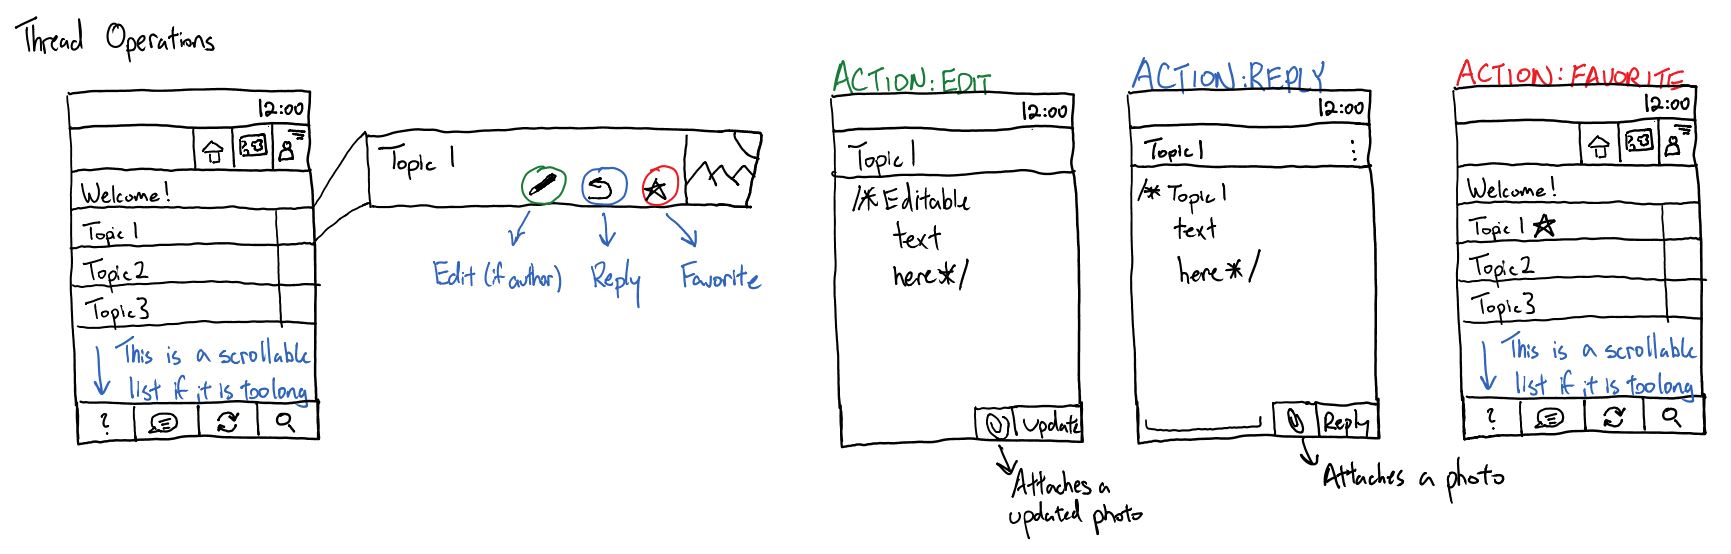 Thread Operations
12:00
Welcome!
Topic 1
Topic 2
Topic 3
This is a scrollable
list if it is too long
?
Topic 1
Edit (if author)
Reply
Favorite
ACTION: EDIT
12:00
Topic 1
/* Editable
text
here */
Update
Attaches a
updated photo
ACTION: REPLY
12:00
Topic 1
/* Topic 1
text
here */
Reply
Attaches a photo
ACTION: FAVORITE
12:00
Welcome!
Topic 1
Topic 2
Topic 3
This is a scrollable
list if it is too long
?